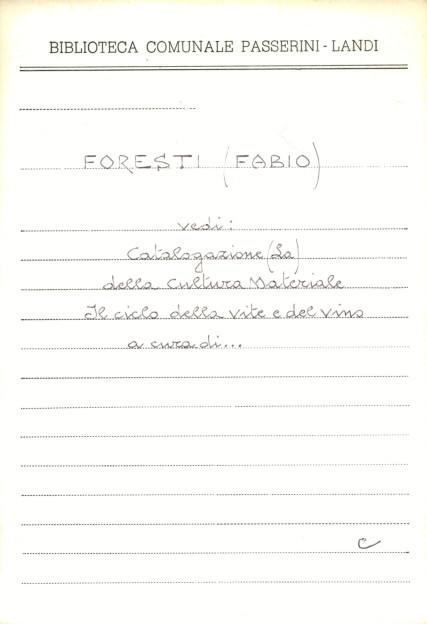 BIBLIOTECA COMUNALE PASSERINI-LANDI
FORESTI (FABIO)
vedi:
Catalogazione (La)
della Cultura Materiale
Il ciclo della vite e del vino
a cura di...
C